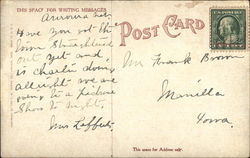 THIS SPACE FOR WRITING MESSAGES
POST CARD
Aurora Neb.
Have you got the
town straightened
out yet and
is Charlie doing
allright we are
going to a picture
Show to night.
Mrs Laffert
Mr Frank Brown
Manilla
Iowa.
This space for Address only.